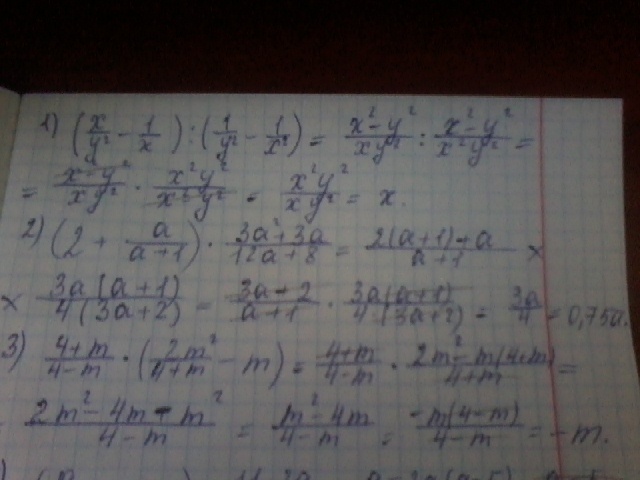 1) (x/y² - 1/x) : (1/y² - 1/x²) = x² - y²/xy² : x² - y²/x²y² =
= x² - y²/xy² · x²y²/x² - y² = x²y²/xy² = x.
2) (2 + a/a+1) · 3a²+3a/12a+8 = 2(a+1)+a/a+1 ×
× 3a(a+1)/4(3a+2) = 3a+2/a+1 · 3a(a+1)/4(3a+2) = 3a/4 = 0,75a.
3) 4+m/4-m · (2m²/4+m - m) = 4+m/4-m · 2m²-m(4+m)/4+m =
2m²-4m-m²/4-m = m²-4m/4-m = -m(4-m)/4-m = -m.